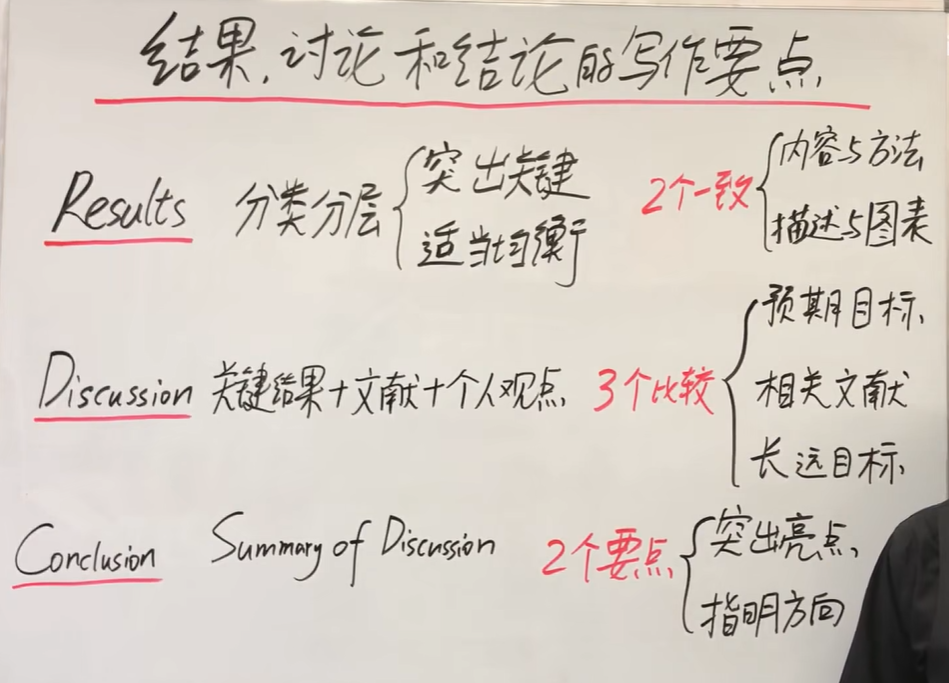 结果,讨论和结论的写作要点
Results 分类分层 突出关键 适当均衡 2个一致 内容与方法 描述与图表
Discussion 关键结果+文献+个人观点 3个比较 预期目标 相关文献 长远目标
Conclusion Summary of Discussion 2个要点 突出亮点 指明方向